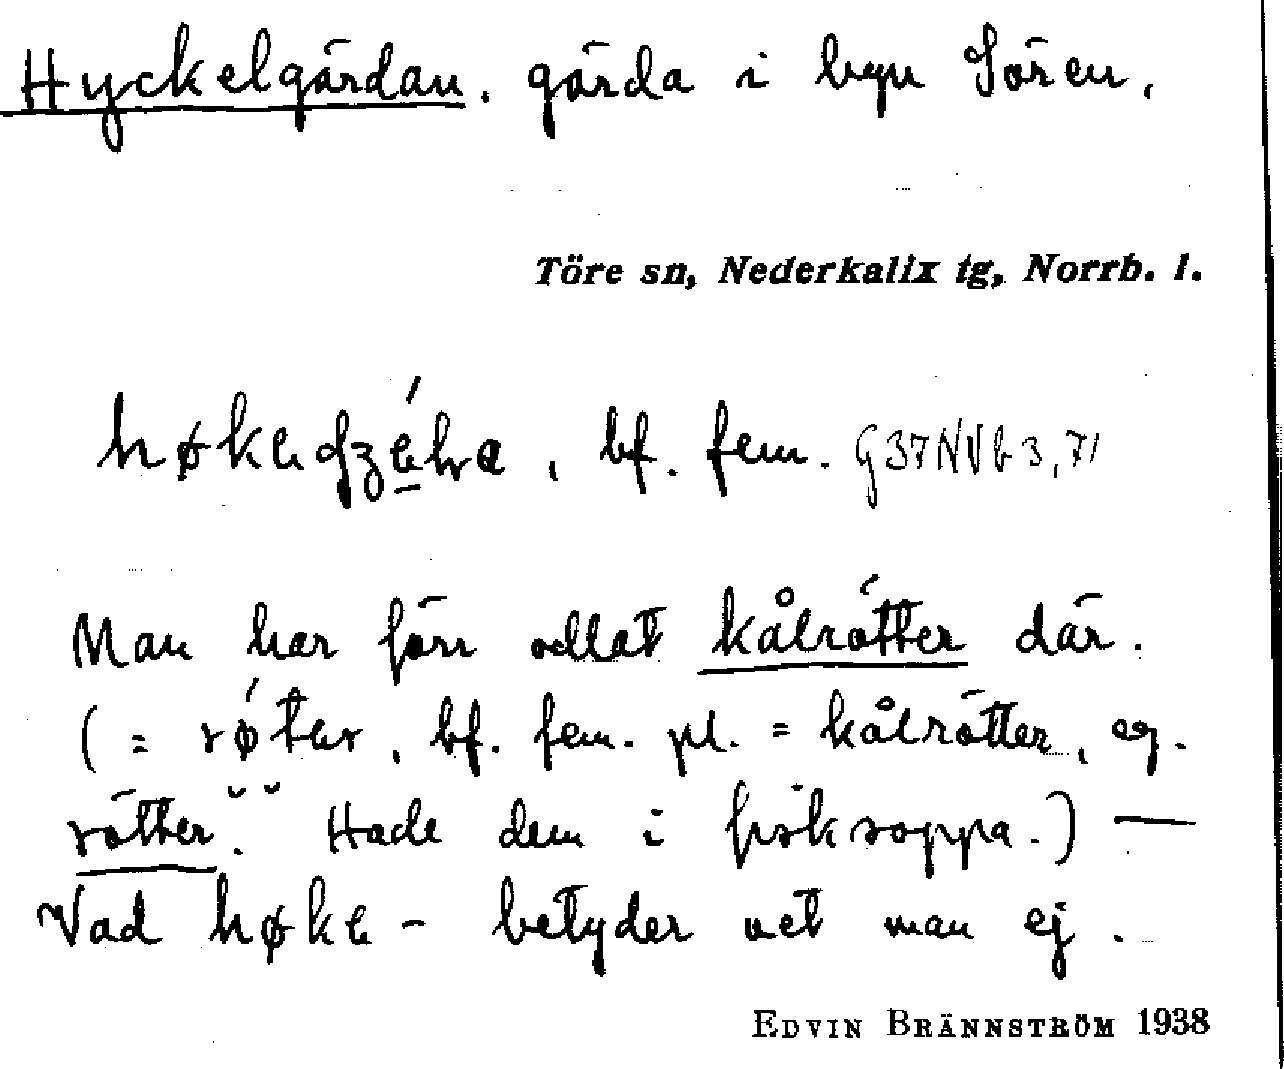 Hyckelgärdan. gärda i byn Sören.
Töre sn, Nederkalix tg, Norrb. l.
bf. fem. G37NVb3,71
Man har förr odlat kålrötter där.
( = røtер, bf. fem. pl. = kålrötter, eg.
rötter. Hade dem i fisksoppa.) —
Vad høke - betyder vet man ej.
EDVIN BRÄNNSTRÖM 1938